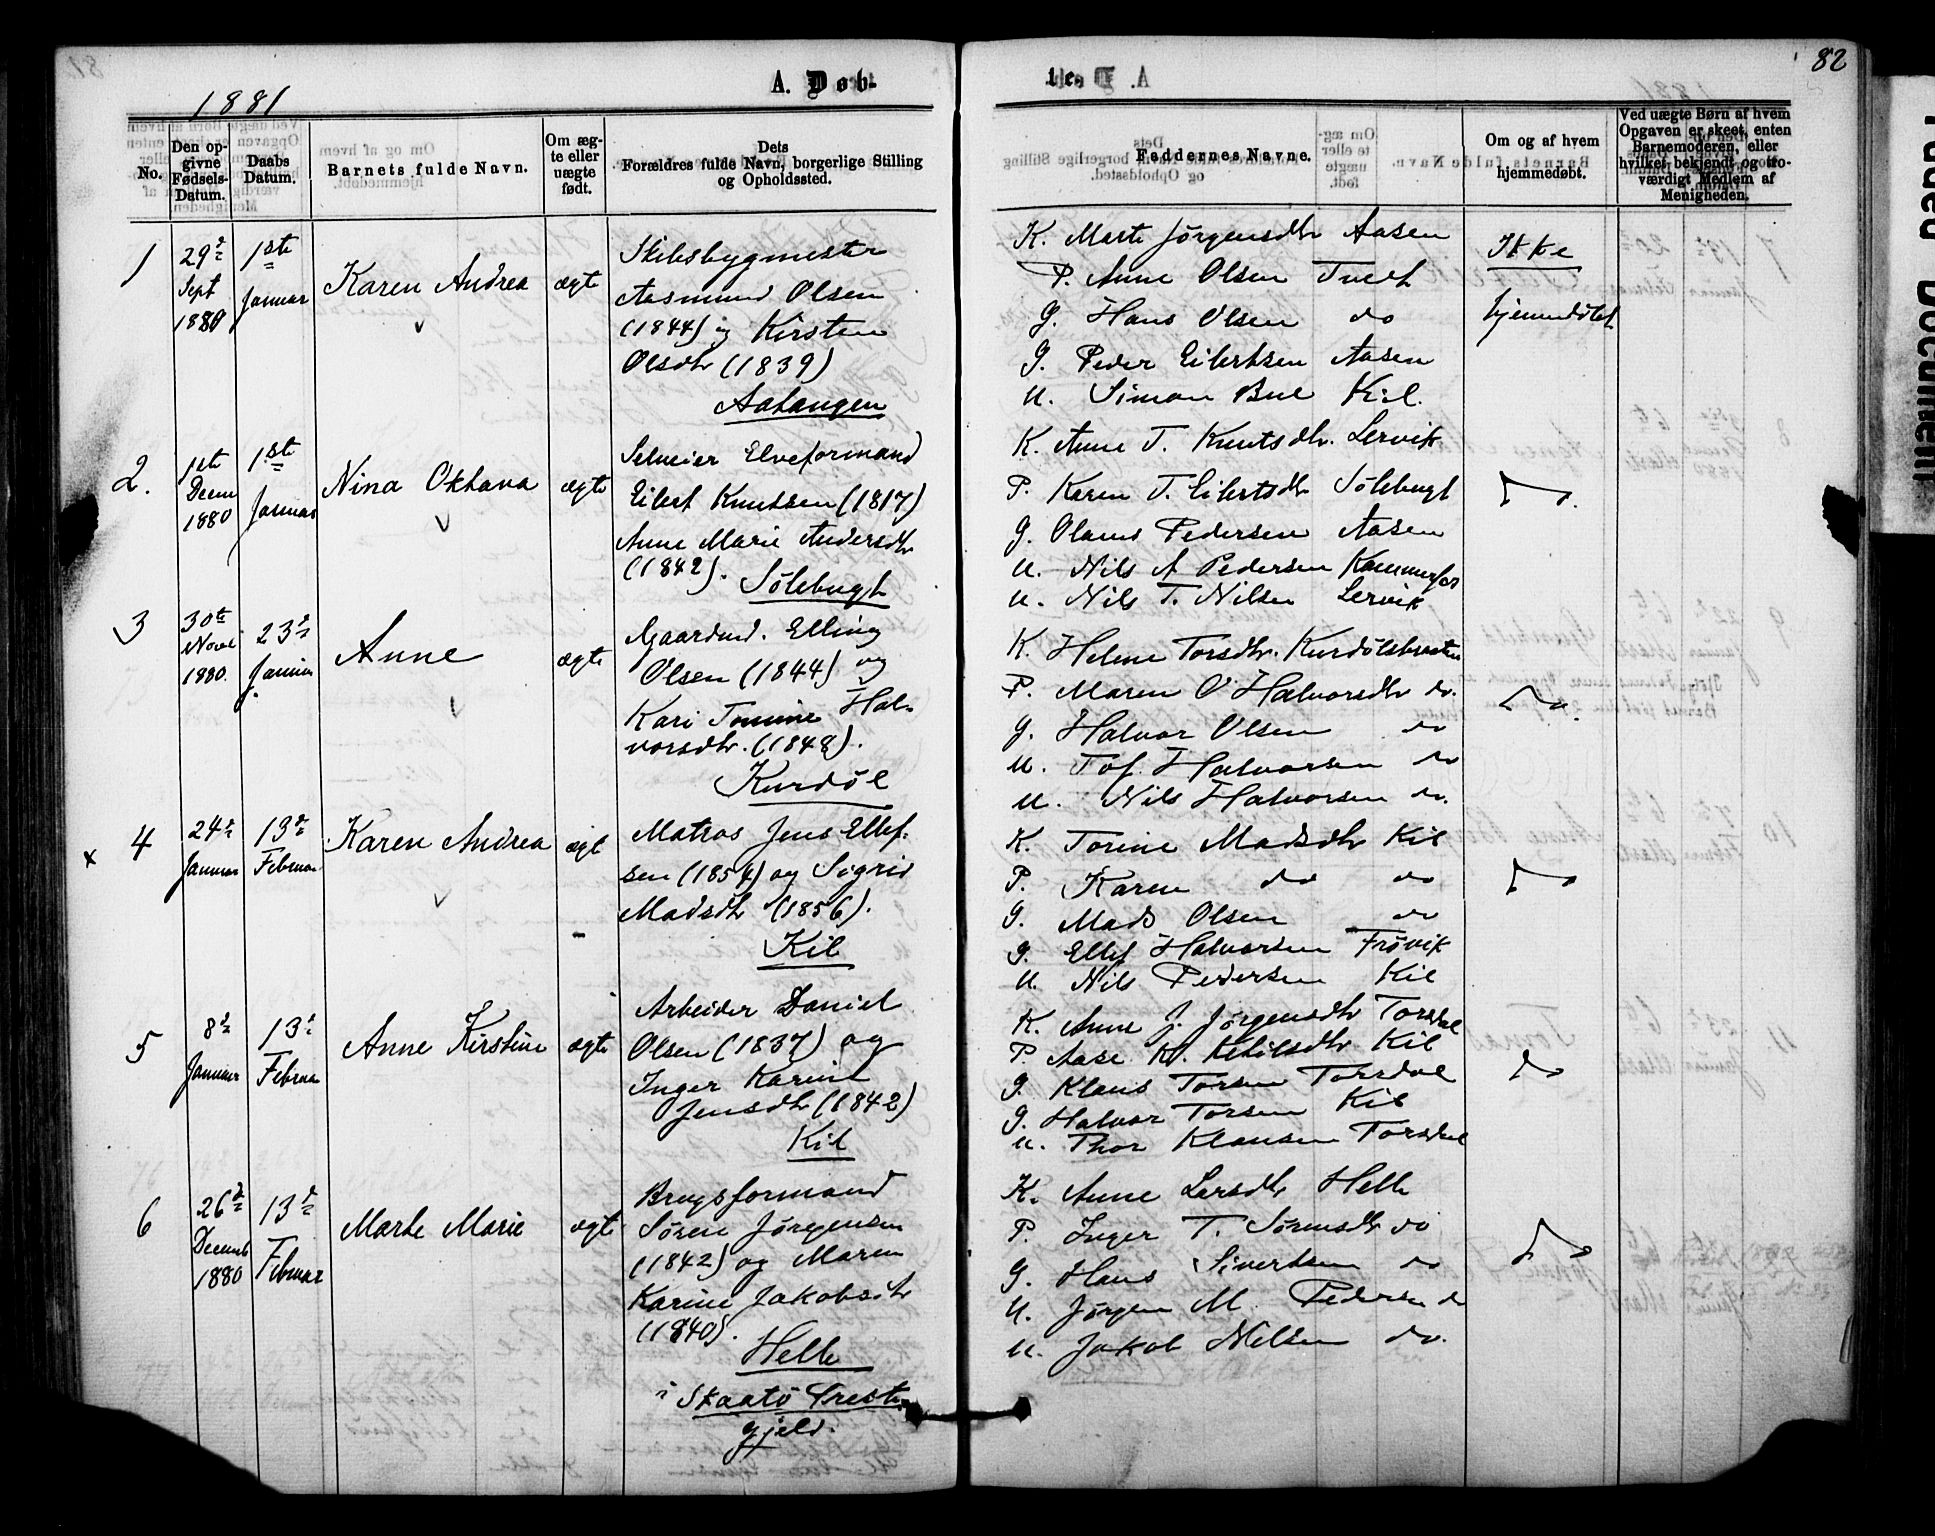 82
1881
A. Døb-
te.
No.
Den op-
givne
Fødsels-
Datum.
Daabs
Datum.
Barnets fulde Navn.
Om æg-
te eller
uægte
født.
Dets
Forældres fulde Navn, borgerlige Stilling
og Opholdssted.
Faddernes Navne.
Om og af hvem
hjemmedøbt.
Ved uægte Børn af hvem
Opgaven er skeet, enten
Barnemoderen, eller
hvilket bekjendt og tro-
værdigt Medlem af
Menigheden.
1
29de
Sept
1880
1ste
Januar
Karen Andrea
ægte
Skibsbygmester
Aasmund Olsen
(1844) og Kirsten
Olsdtr (1839)
Aatangen
K. Marte Jørgensdtr Aasen
P. Anne Olsen Tvedt
G. Hans Olsen do
G. Peder Eilertsen Aasen
U. Simon Buel Kil.
Ikke
hjemmedøbt
2.
1ste
Decem
1880
1ste
Januar
Nina Oktava
ægte
Selveier Elveformand
Eilert Knutsen (1817)
Anne Marie Andersdtr
(1842).
Sølebugt
K. Anne T. Knutsdtr. Lervik
P. Karen T. Eilertsdtr Sølebugt
G. Olaus Pedersen Aasen
U. Nils A Pedersen
U. Nils T. Nilsen Lervik
do.
3
30te
Nove
1880.
23de
Januar
Anne
ægte
Gaardmd. Elling
Olsen (1844) og
Kari Tomine Hal-
vorsdtr. (1848).
Kurdøl
K. Helene Torsdtr.
P. Maren O Halvorsdtr do.
G. Halvor Olsen do
U. Tof. Halvorsen do
U. Nils Halvorsen do.
do.
x
4
24de
Januar
13de
Februar
Karen Andrea
ægte
Matros Jens Ellef-
sen (1854) og Sigrid
Madsdtr (1856).
Kil
K. Torine Madsdtr Kil
P. Karen do do
G. Mads Olsen do
G. Ellef Halvorsen Frøvik
U. Nils Pedersen Kil
do
5
8de
Januar
13de
Februar
Anne Kirstine
ægte
Arbeider Daniel
Olsen (1837) og
Inger Karine
Jensdtr (1842)
Kil
K. Anne J. Jørgensdtr Torsdal
P. Aase K. Ketilsdtr Kil
G. Klaus Torsen Torsdal
G. Halvor Torsen Kil
U. Thor Klausen Torsdal
do
6
26de
Decemb
1880
13de
Februar
Marte Marie
ægte
Brugsformand
Søren Jørgensen
(1842) og Maren
Karine Jakobsdtr
(1840).
Helle
i Skaatø Preste-
gjeld.
K. Anne Larsdtr Helle
P. Inger T. Sørensdtr do
G. Hans Sivertsen do
U. Jørgen M. Pedersen do
U. Jakob Nilsen do.
do